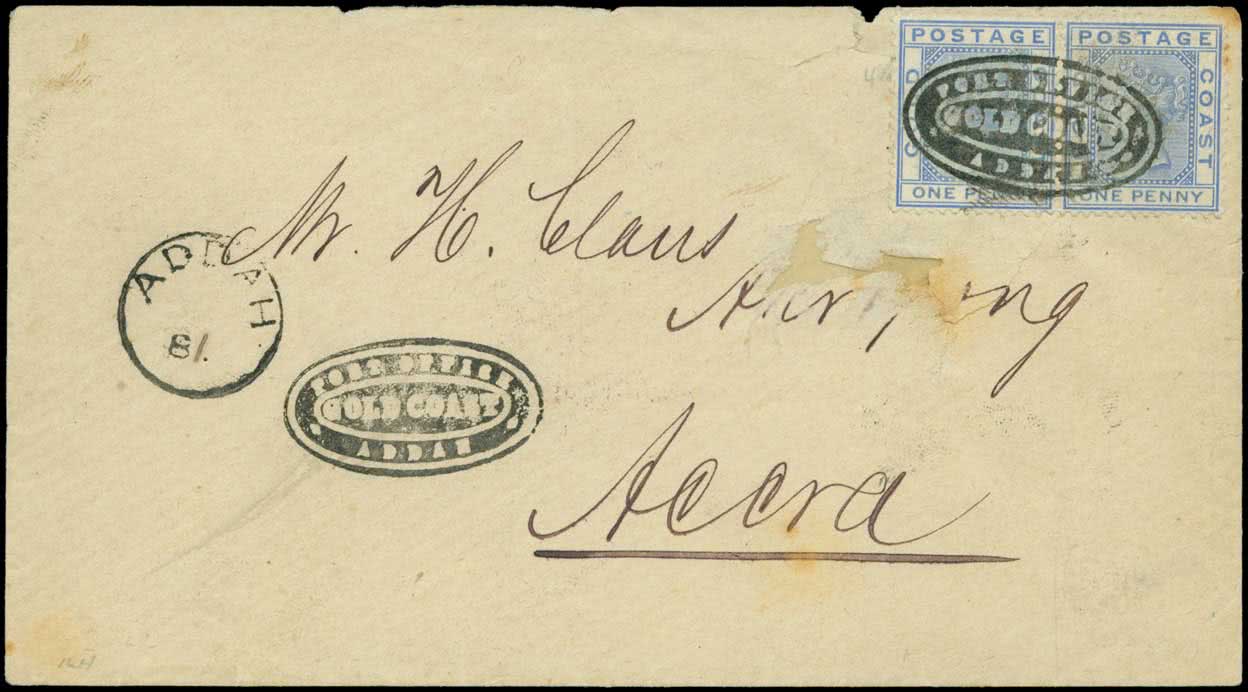 POSTAGE POSTAGE
COAST
ONE PENNY
POST OFFICE
GOLD COAST
ADDAH
Mr. H. Claus
Accra
ADDAH
81.
POST OFFICE
GOLD COAST
ADDAH